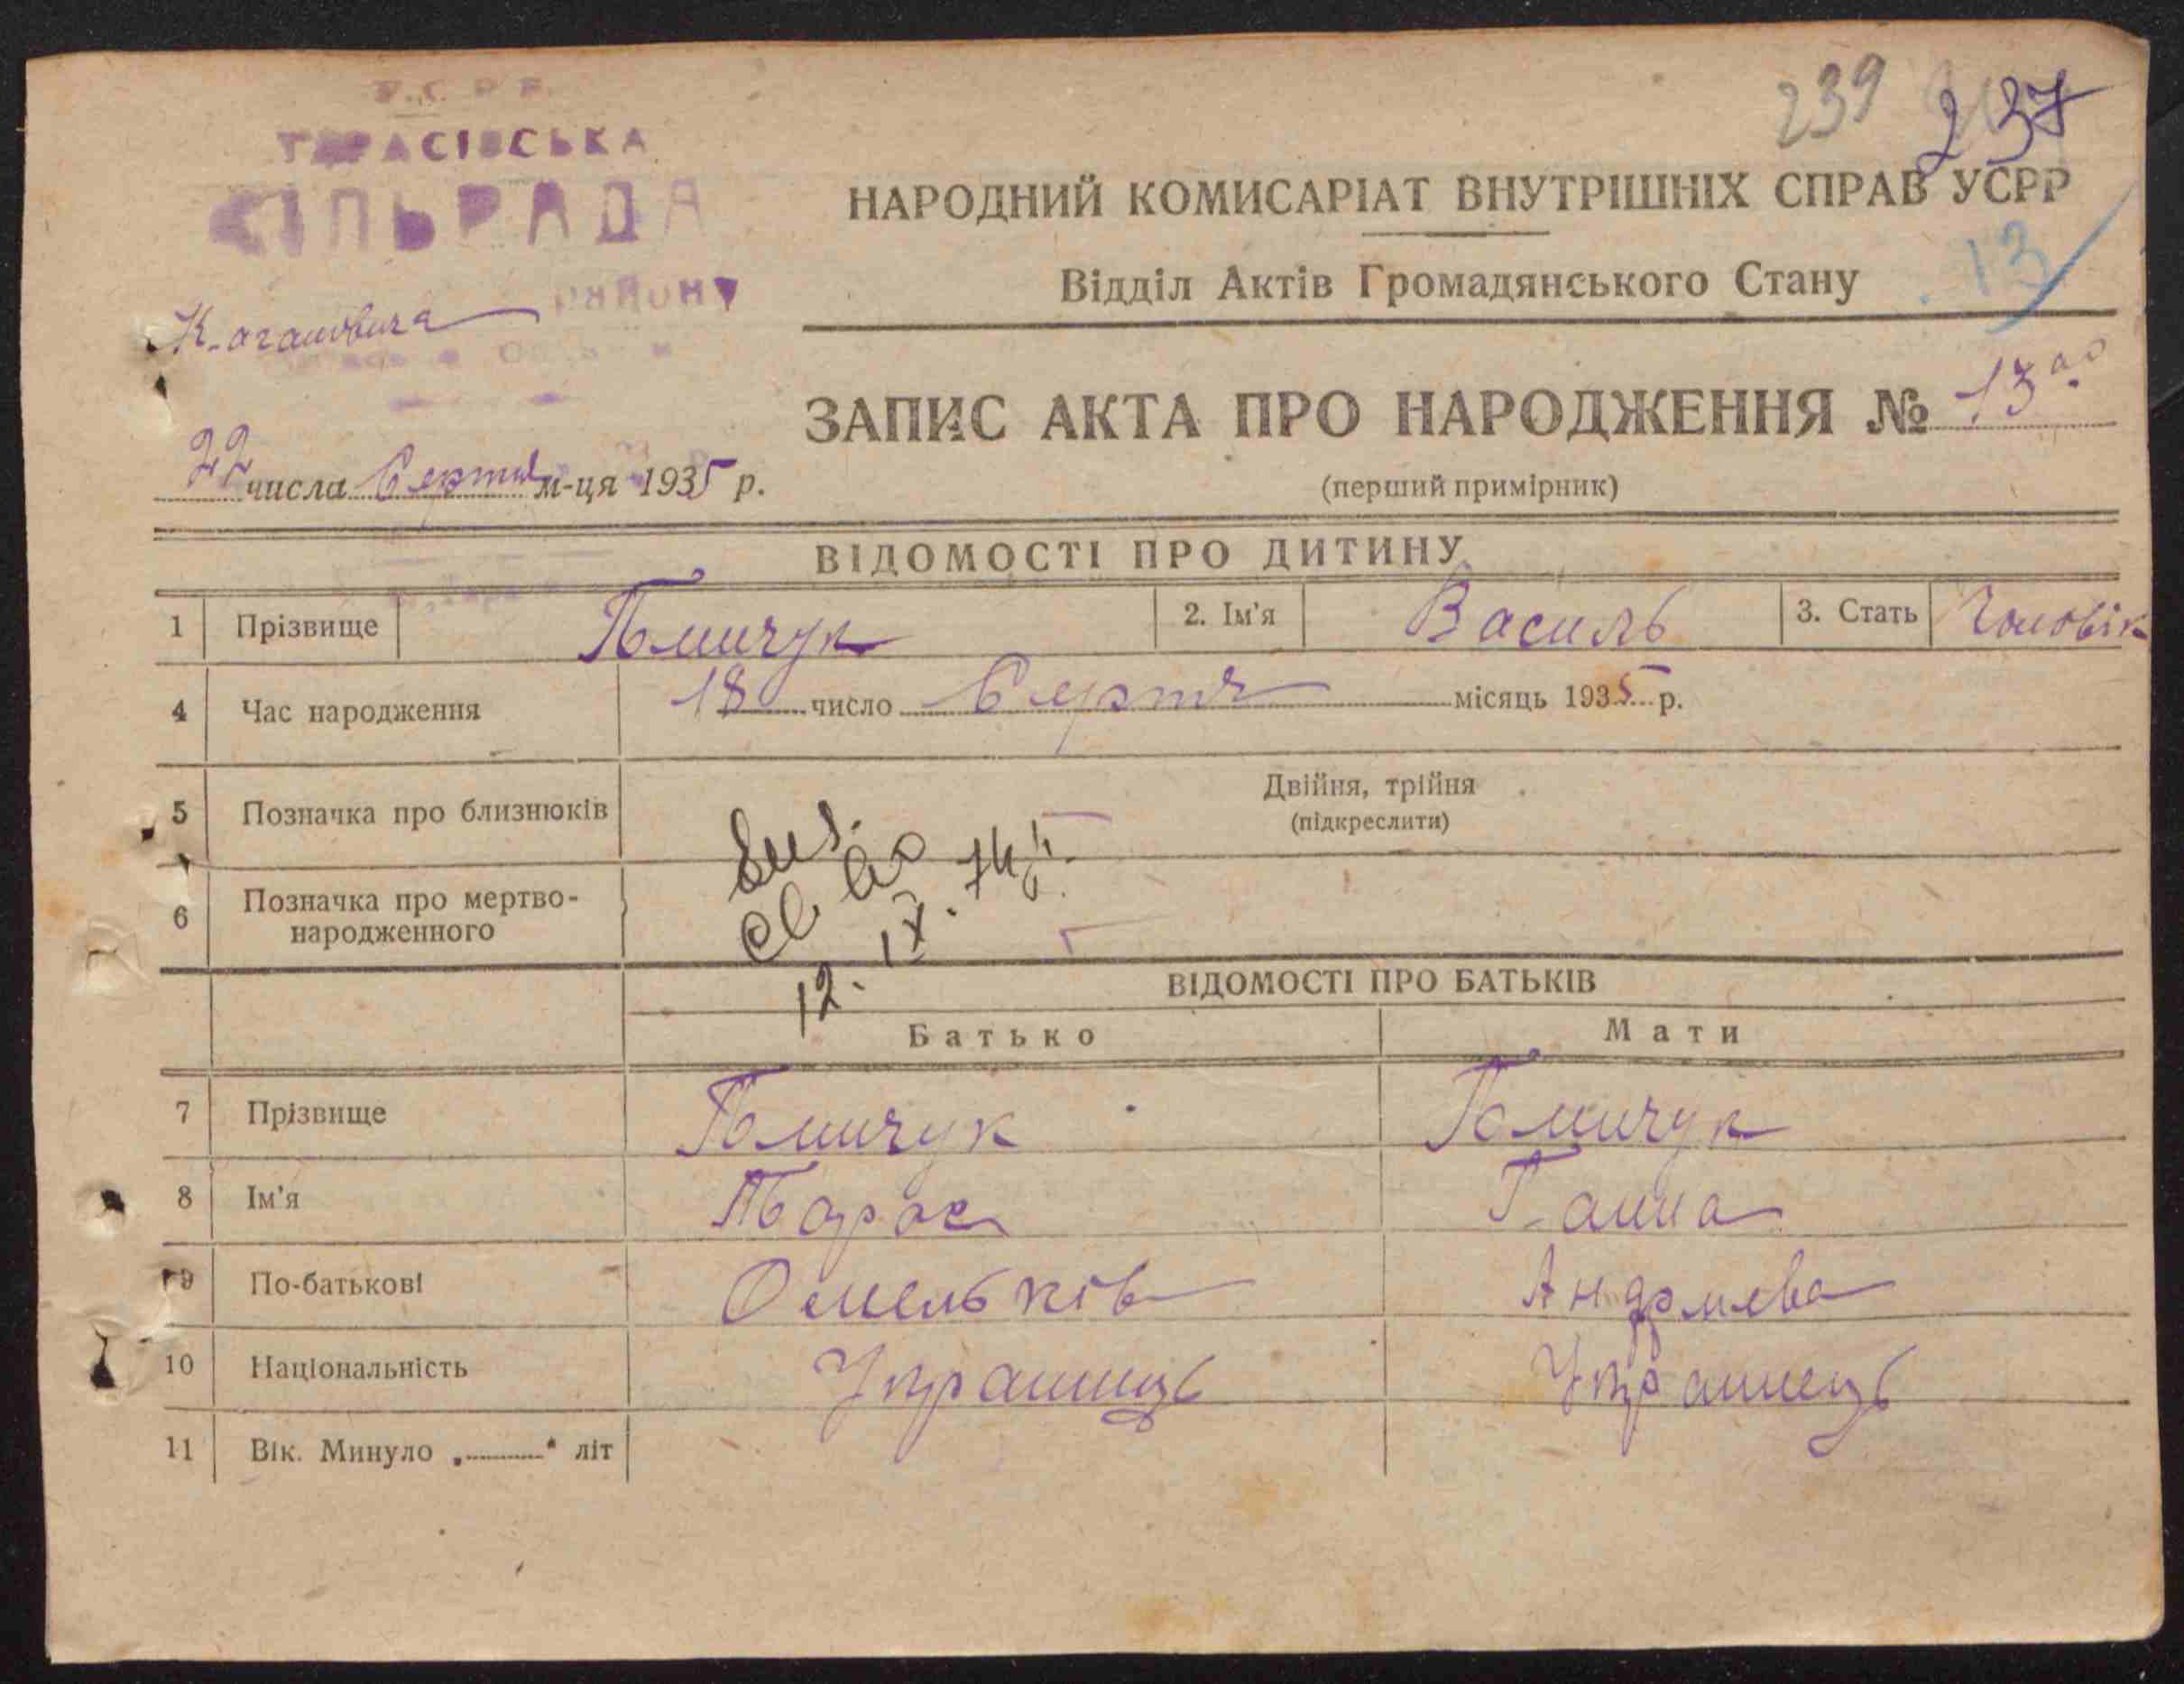 У.С.Р.Р.
ТАРАСІВСЬКА
СІЛЬРАДА
Кагановича РАЙОНУ
22 числа Серпня м-ця 1935 р.
239 237
НАРОДНИЙ КОМИСАРІАТ ВНУТРІШНІХ СПРАВ УСРР
Відділ Актів Громадянського Стану
13
ЗАПИС АКТА ПРО НАРОДЖЕННЯ № 13
(перший примірник)
ВІДОМОСТІ ПРО ДИТИНУ
1 Прізвище 2. Ім'я Василь 3. Стать Чоловік
4 Час народження 18 число Серпня місяць 1935 р.
5 Позначка про близнюків Двійня, трійня
(підкреслити)
6 Позначка про мертво-
народженного
12. IX. 74
ВІДОМОСТІ ПРО БАТЬКІВ
Батько Мати
7 Прізвище
8 Ім'я Тарас Ганна
9 По-батькові Омельков Андриева
10 Національність Украинць Украинець
11 Вік. Минуло „ “ літ